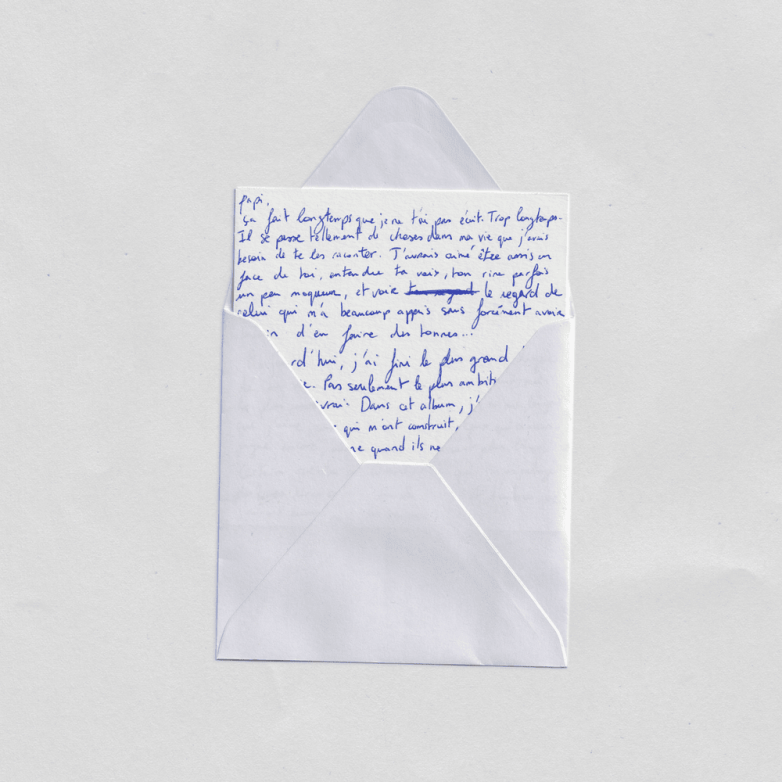 papi,
ça fait longtemps que je ne t'ai pas écrit. Trop longtemps.
Il se passe tellement de choses dans ma vie que j'avais
besoin de te les raconter. J'aurais aimé être assis en
face de toi, entendre ta voix, ton rire parfois
un peu moqueur, et voir ton regard le regard de
celui qui m'a beaucoup appris sans forcément avoir
in d'en faire des tonnes...
rd'hui, j'ai fini le plus grand
e. Pas seulement le plus ambiti
vrai. Dans cet album, j'
qui m'ont construit,
me quand ils ne